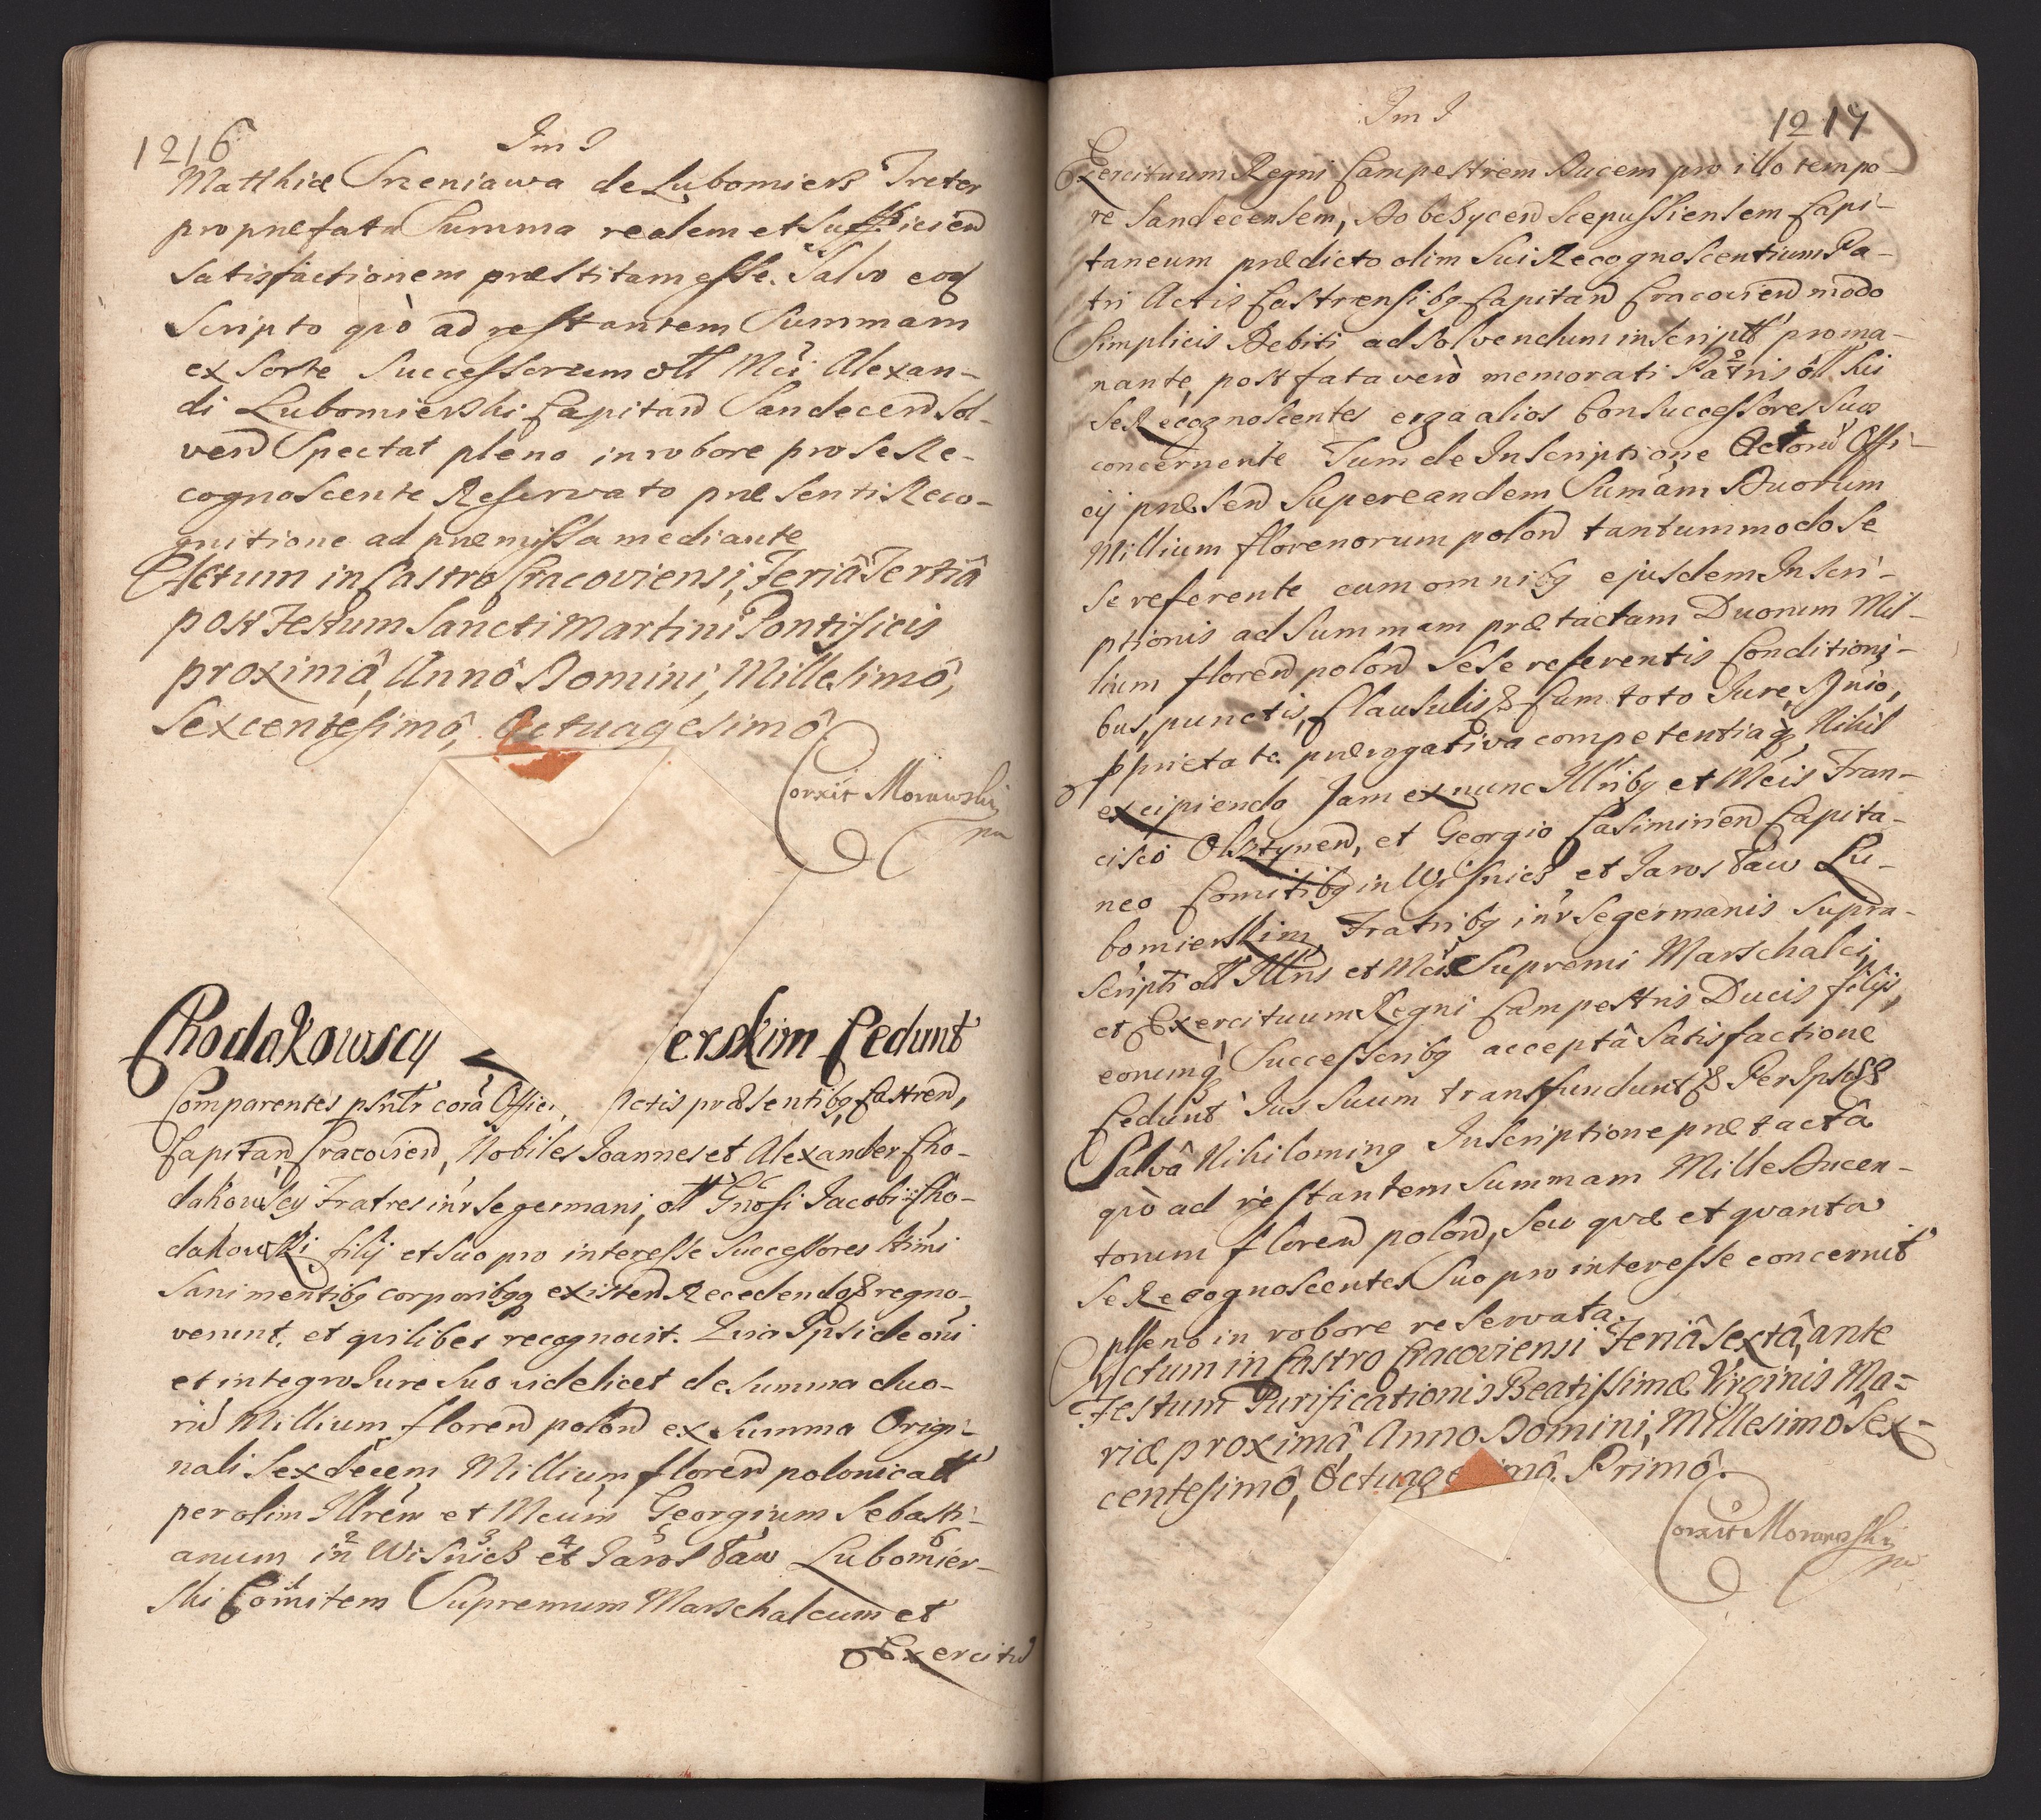 1216
Im I
Matthiæ Srzeniawa de Lubomierz Treter
pro præfata Summa realem et sufficien
satisfactionem præstitam esse. Salvo eoq
Scripto qvò ad restantem Summam
ex sorte Successorum oll Mci Alexan-
di Lubomierski Capitan Sandecen sol-
ven Spectat pleno in robore pro se Re-
cognoscente Reservato præsenti Reco-
gnitione ad præmissa mediante
Actum in Castro Cracoviensi, Feriâ Tertiâ
post Festum Sancti Martini Pontificis
proximâ, Annô Domini, Millesimô,
Sexcentesimô, Octuagesimô
Corxit Morawski
mp
Chodakowscy erskim Cedunt
Comparentes psntr corã Offici Actis præsentibq Castren,
Capitan Cracovien, Nobiles Joannes et Alexander Cho-
dakowscy Fratres inr se germani, oll Gnosi Jacobi Cho-
dakowski filij et suo pro interesse Successores ltimi
Sani mentibq corporibqq existen Recedendo & regno-
verunt, et qvilibet recognovit. Quia Ipsi de oni
et integro Jure suo videlicet de summa duo-
rũ Millium floren polon ex summa Origi-
nali Sexdecem Millium floren polonicall
per olim Illrem et Mcum Georgium Sebasti-
anum in Wisnicz et Jarosław Lubomier-
ski Comitem Supremum Marschalcum et
Exercitũ
Im I
1217
Exercituum Regni Campestrem Ducem pro illo tempo-
re Sandecensem, Dobczycen Scepussiensem Capi-
taneum prædicto olim sui Recognoscentium Pa-
tri Actis Castrensibq Capitan Cracovien modo
Simplicis Debiti ad solvendum inscriptt proma-
nante, post fata verò memorati Patris oll hi
se Recognoscentes erga alios Consuccessores suos
concernente Tum de Inscriptione Actorũ Offi-
cij præsen super eandem Sumam Duorum
Millium florenorum polon tantummodo se
se referente cum omnibq ejusdem Inscri-
ptionis ad Summam prætactam Duorum Mil-
lium floren polon sese referentis Conditioni-
bus, punctis, Clausulis & Cum toto Jure, Dnio,
pprietate prærogativa competentiaq Nihil
excipiendo Jam ex nunc Illribq et Mcis Fran-
cisco Olsztynen, et Georgio Casimirien Capita-
neo Comitibq in Wisnicz et Jarosław Lu-
bomierskim Fratribq inr se germanis supra-
scripti oll Illris et Mci Supremi Marschalci,
et Exercituum Regni Campestris Ducis filijs,
eorumq Successoribq acceptâ satisfactione
Cedunt Jus suum transfundunt & Per Ipsos &
Salvâ Nihilominq Inscriptione prætactâ
qvò ad restantem summam Mille Ducen-
torum floren polon, seu qvæ et qvanta
se Recognoscentes Suo pro interesse concernit
pleno in robore reservata.
Actum in Castro Cracoviensi Feriâ Sextâ, ante
Festum Purificationis Beatissimæ Virginis Ma-
riæ proximâ, Anno Domini, Millesimô Sex-
centesimô, Octuagesimô. Primô.
Corxit Morawski
mp